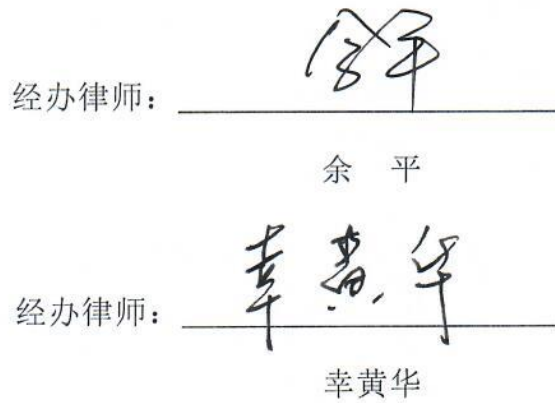 经办律师：余平
余 平
经办律师：幸黄华
幸黄华